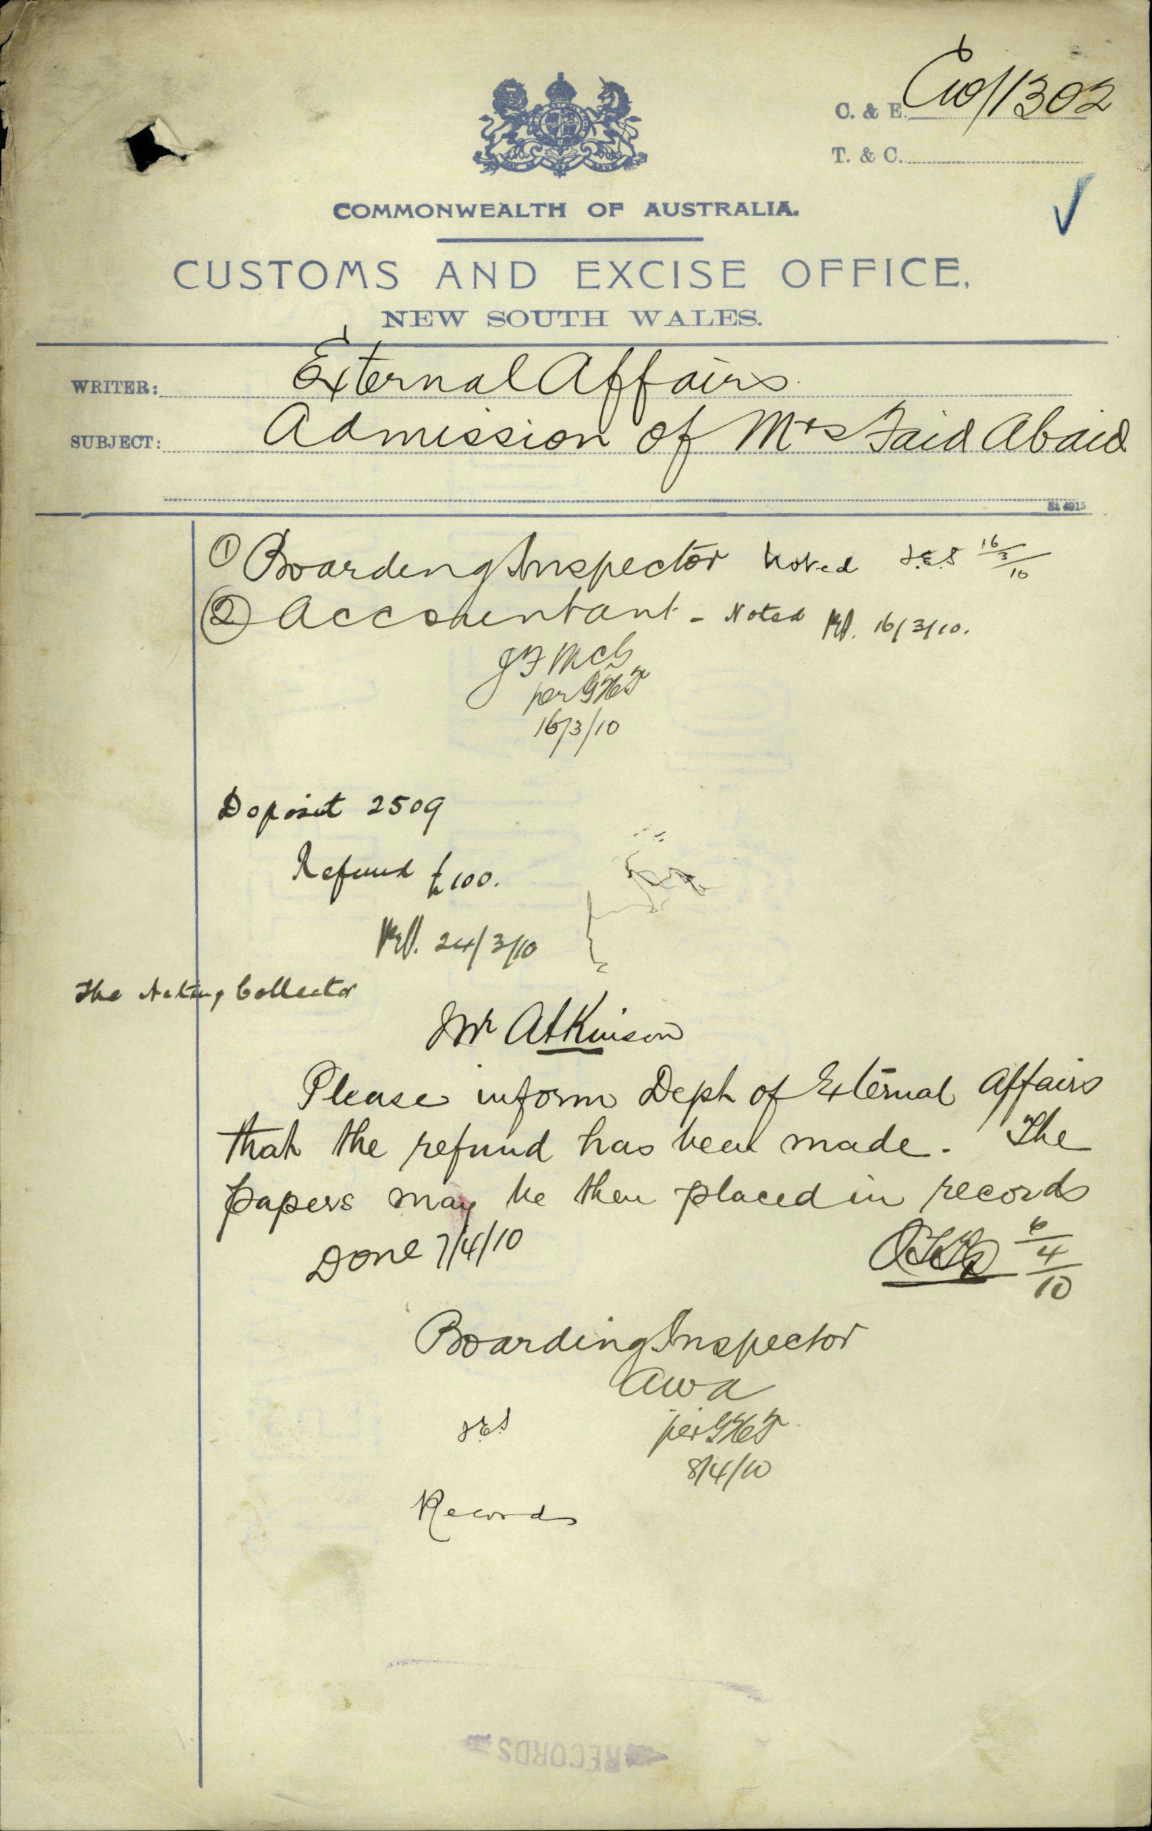 C. & E. C10/1302
T. & C.
COMMONWEALTH OF AUSTRALIA.
CUSTOMS AND EXCISE OFFICE,
NEW SOUTH WALES.
WRITER: External Affairs
SUBJECT: Admission of Mrs Faid Abaid
① Boarding Inspector Noted J.E.S 16/3/10
② Accountant - Noted 16/3/10.
J F McG
per GHF
16/3/10
Deposit 2509
Refund £100.
24/3/10
The Acting Collector
Mr Atkinson
Please inform Dept of External Affairs
that the refund has been made. The
papers may be then placed in records
Done 7/4/10
6/4/10
Boarding Inspector
AWA
J.E.S per GHF
8/4/10
Records
RECORDS